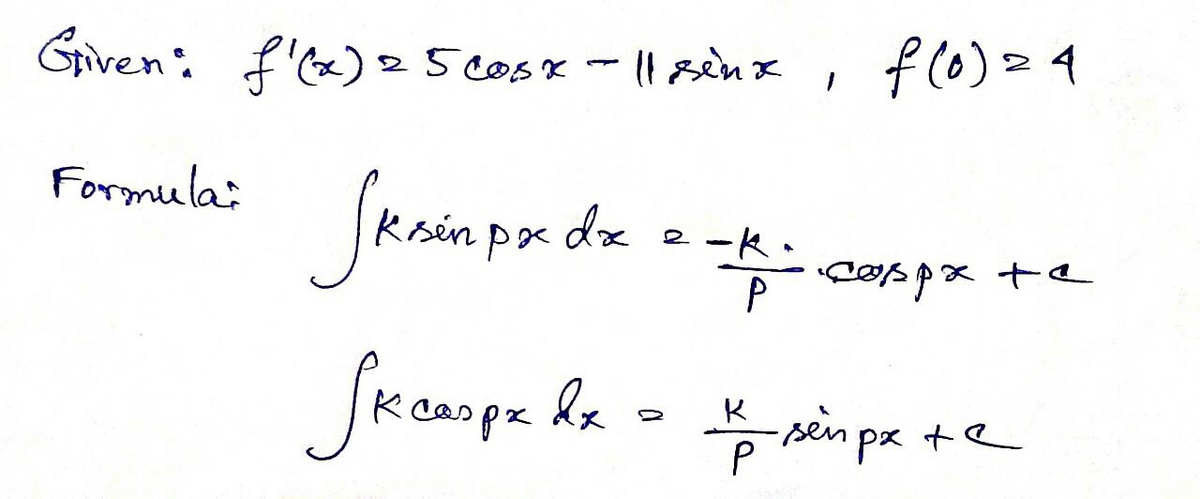 Given: f'(x) = 5 cos x - 11 sin x , f(0) = 4
Formula: ∫ K sin px dx = -K/P . cos px + c
∫ K cos px dx = K/P sin px + c